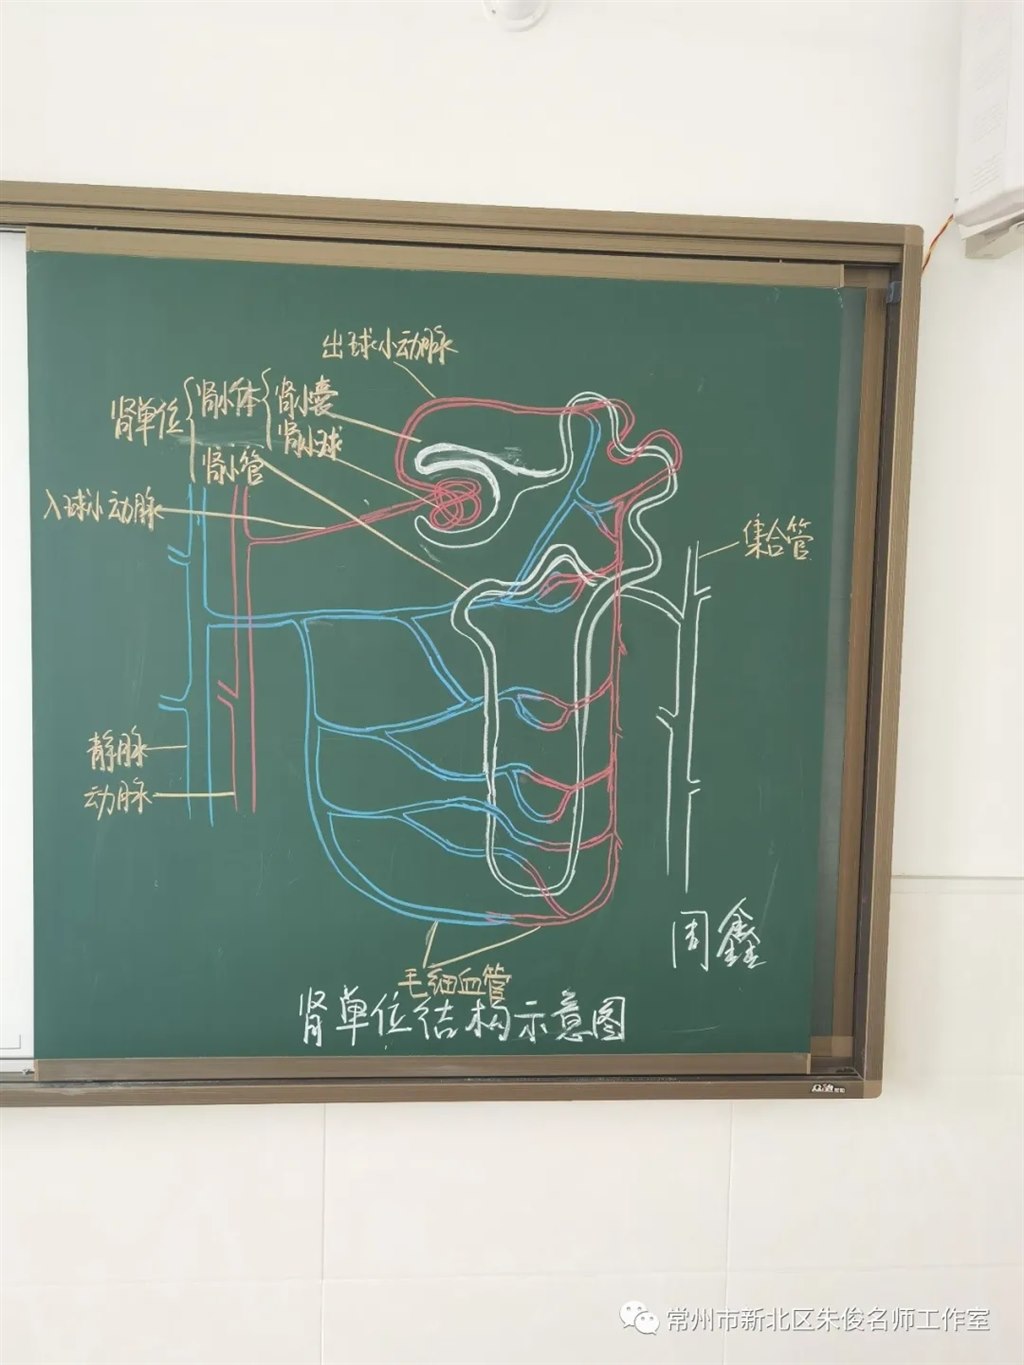 出球小动脉
肾单位
肾小体
肾小囊
肾小球
肾小管
入球小动脉
集合管
静脉
动脉
毛细血管
周鑫
肾单位结构示意图
常州市新北区朱俊名师工作室